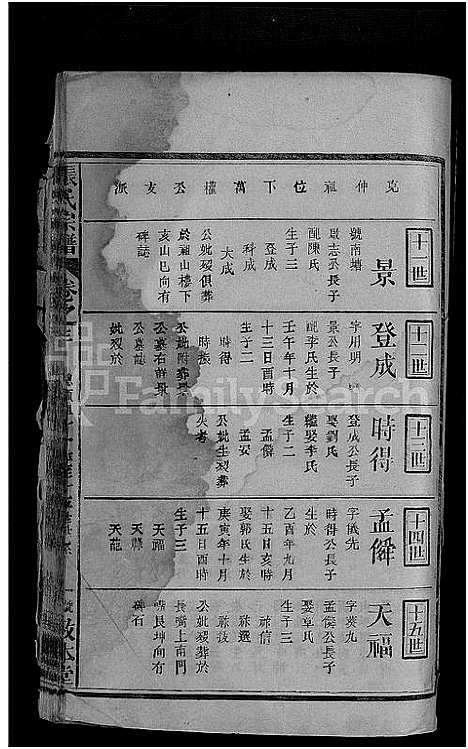 克伸祖位下萬權公支派
十一世
景
號南塘
啟志公長子
配陳氏
生子三
登成
科成
大成
公妣歿俱葬
於祖山樓下
亥山巳向有
碑誌
十二世
登成
字用明
景公長子
配李氏生於
壬午年十月
十三日酉時
生子二
時得
時旌
公妣附葬景
公墓右詳景
公墓誌
妣歿於
十三世
時得
登成公長子
娶劉氏
繼娶李氏
生子二
孟僻
孟安
公妣生歿葬
失考
十四世
孟僻
字儀先
時得公長子
生於
乙酉年九月
十五日亥時
娶郭氏生於
庚寅年十月
十五日酉時
生子三
天福
天爵
天龍
十五世
天福
字癸九
孟僻公長子
娶卓氏
生子三
祿信
祿選
祿ech
公妣歿葬於
長嘴上南門
嘴艮坤向有
碑石
張氏宗譜
卷之三
敬本堂
FamilySearch